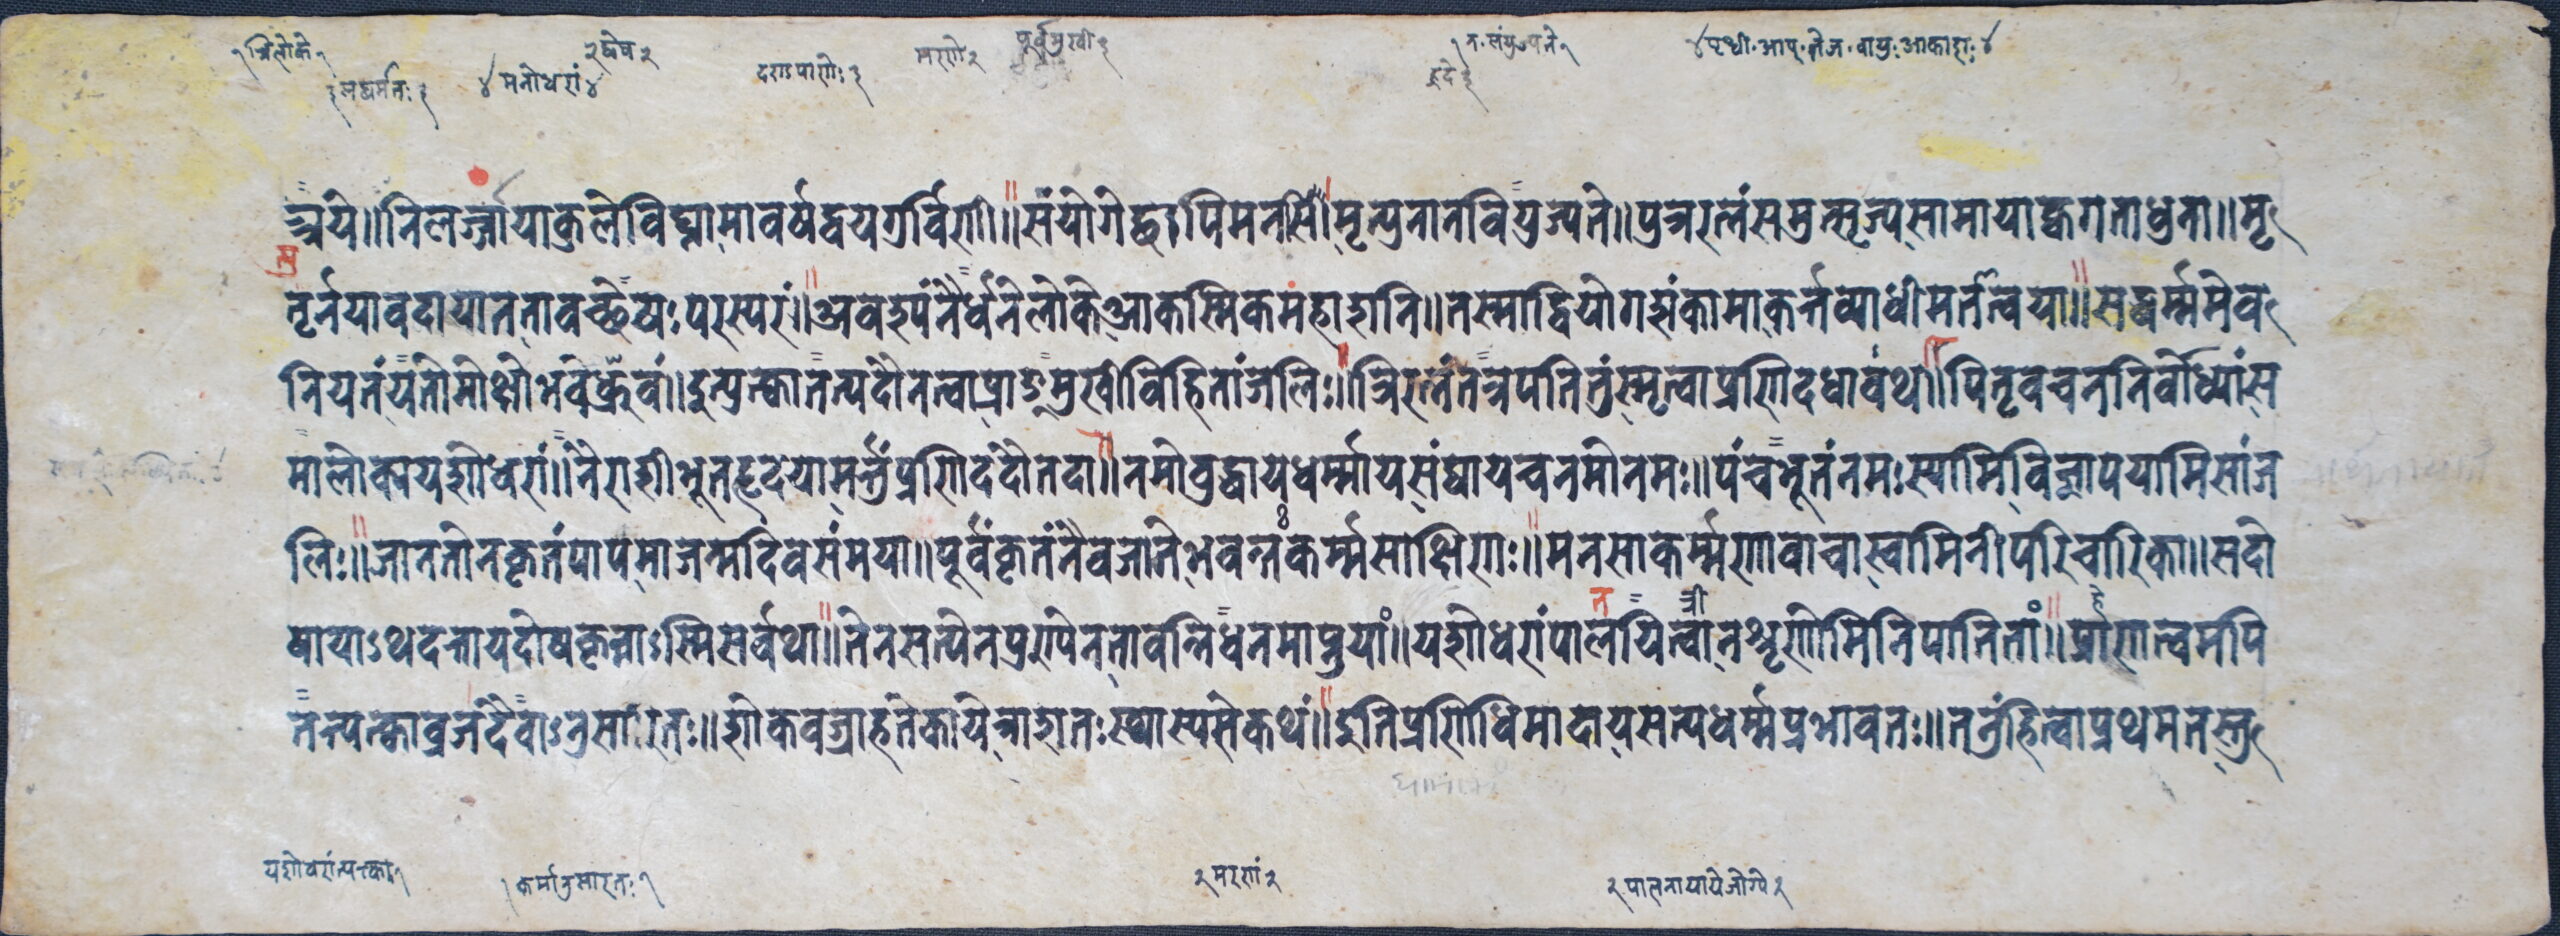 १ त्रिलोके १
२ द्वेष २
मरणे २
पूर्वमुखी ३
१ न संयुज्यते १
४ पृथ्वी आप तेज वायुः आकाशः ४
३ सद्धर्मतः ३
४ मनोधरां ४
हृदे ३
त्रये॥ निलर्ज्जायाकुलेविघ्नामावर्षद्वयगुर्विणी॥ संयोगेह्यपिमनसोमृत्युनानवियुज्यते॥ पुत्ररत्नंसमुत्सृज्यसामायाक्वगताधुना॥ मृ
तृर्नयावदायातत्तावच्छ्रेयःपरस्परं॥ अवश्यंनैर्धनेलोकेआकस्मिकमहाशनि॥ तस्माद्वियोगशंकामाकर्त्तव्याधीमतत्वया॥ सद्धर्म्ममेव
नियतंयतोमोक्षोभवेध्रुवं॥ इत्युत्क्वातत्पदौनत्वाप्राङ्मुखीविहितांजलिः॥ त्रिरत्नंतत्रपतितुंस्मृत्वाप्रणिदधावथ॥ पितृवचननिर्बोध्यांस
मालोक्ययशोधरां॥ नैराशीभूतहृदयामर्त्तुंप्रणिदंदौतदा॥ नमोबुद्धायधर्म्मायसंघायचनमोनमः॥ पंचभूतंनमःस्यामिविज्ञापयामिसांज
लिः॥ जानतोनकृतंपापमाजन्मदिवसंमया॥ पूर्वंकृतंनैवजानेभवन्तकर्म्मसाक्षिणः॥ मनसाकर्म्मणावाचास्वामिनीपरिचारिका॥ सदो
षायाऽथदत्तायदोषकृन्नाऽस्मिसर्वथा॥ तेनसत्येनपुण्येनतावन्निधनमाप्नुयां॥ यशोधरांपालयित्वानशृणोमिनिपातितां॥ प्राणात्वमपि
तत्त्यत्क्वाव्रजदैवाऽनुसारतः॥ शोकवज्राहतेकायेत्राशतःस्थास्यसेकथं॥ इतिप्रणिधिमादायसत्यधर्म्मप्रभावतः॥ तनुंहित्वाप्रथमतस्तु
यशोधरांत्यत्का १
१ कर्मानुसारतः १
२ मरणं २
२ पालनायाये जोग्ये २